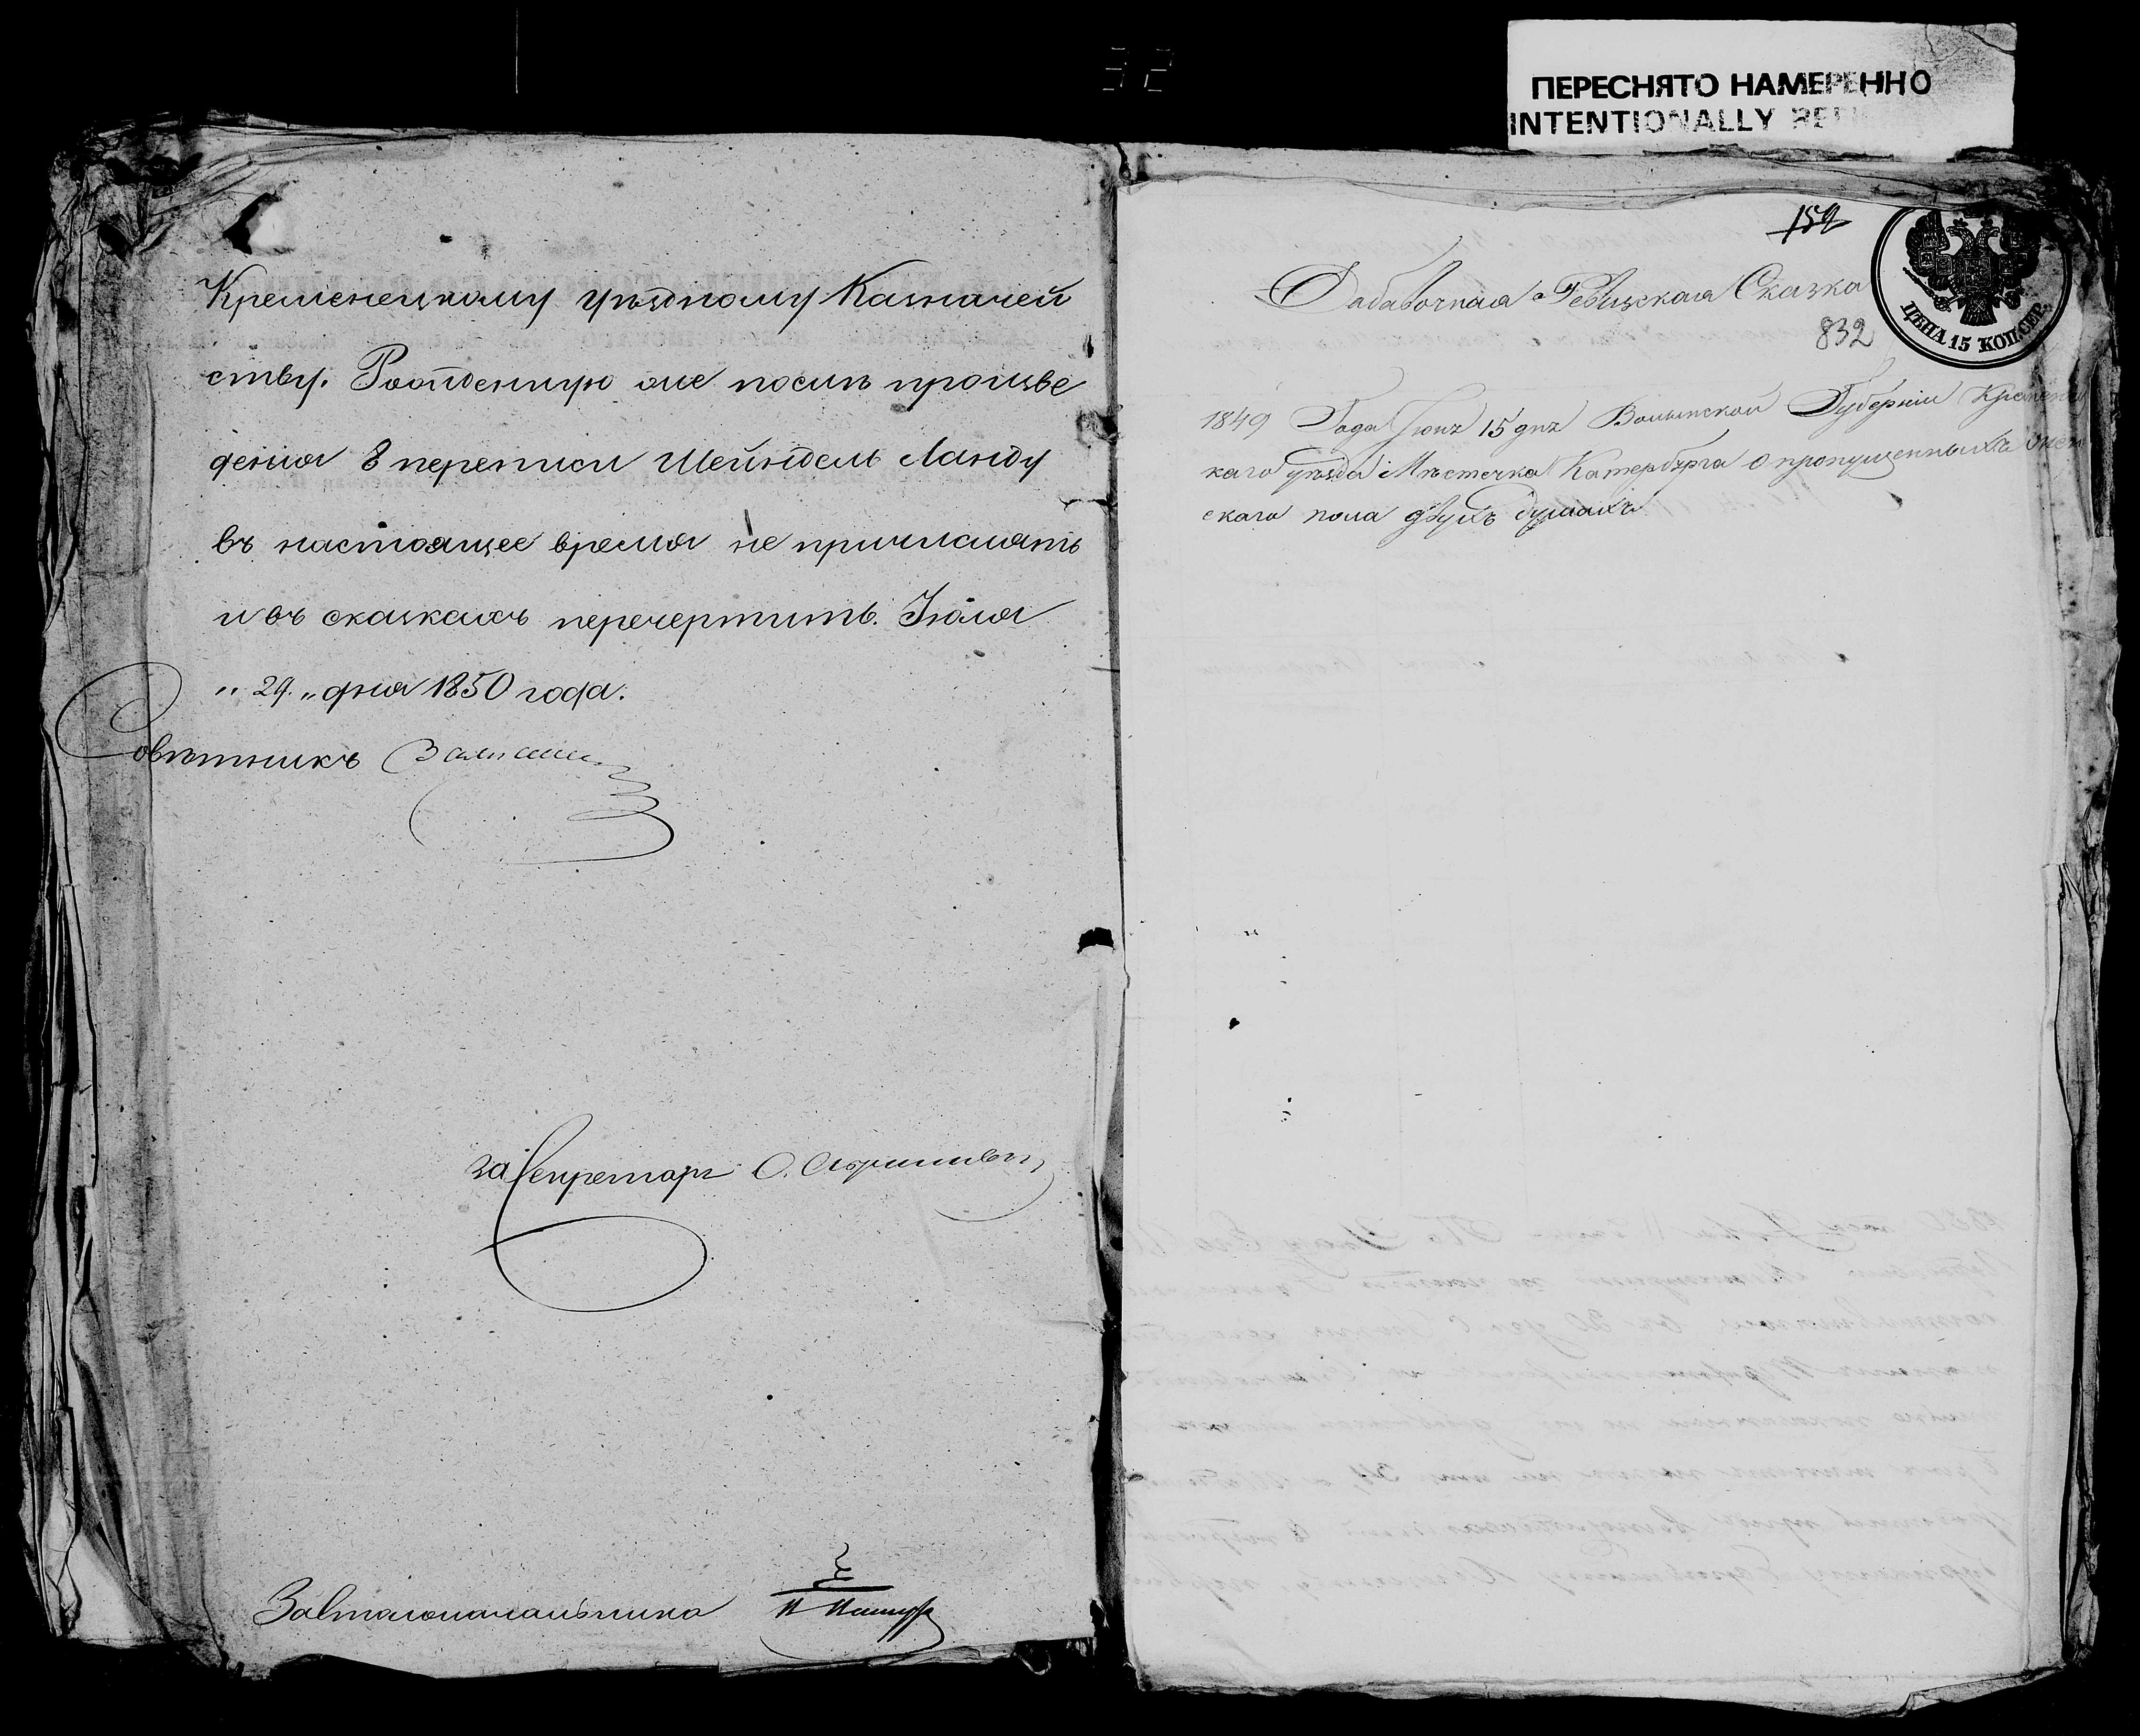 ПЕРЕСНЯТО НАМЕРЕННО
INTENTIONALLY
Кременецкому уѣздному Казначей
ству. Рожденную же послѣ произве
денія 8 переписи Шейндель Ланду
въ настоящее время не причислять
и въ сказкахъ перечертить. Іюля
„ 29 „ дня 1850 года.
Совѣтникъ
за Секретаря
За Столоначальника
152
Дабавочная Ревизская Сказка
832
ЦѢНА 15 КОП. СЕР.
1849 Года Іюня 15 дня Волынской Губерніи Кременец
каго уѣзда Мѣстечка Катербурга о пропущенныхъ
скаго пола двухъ душахъ